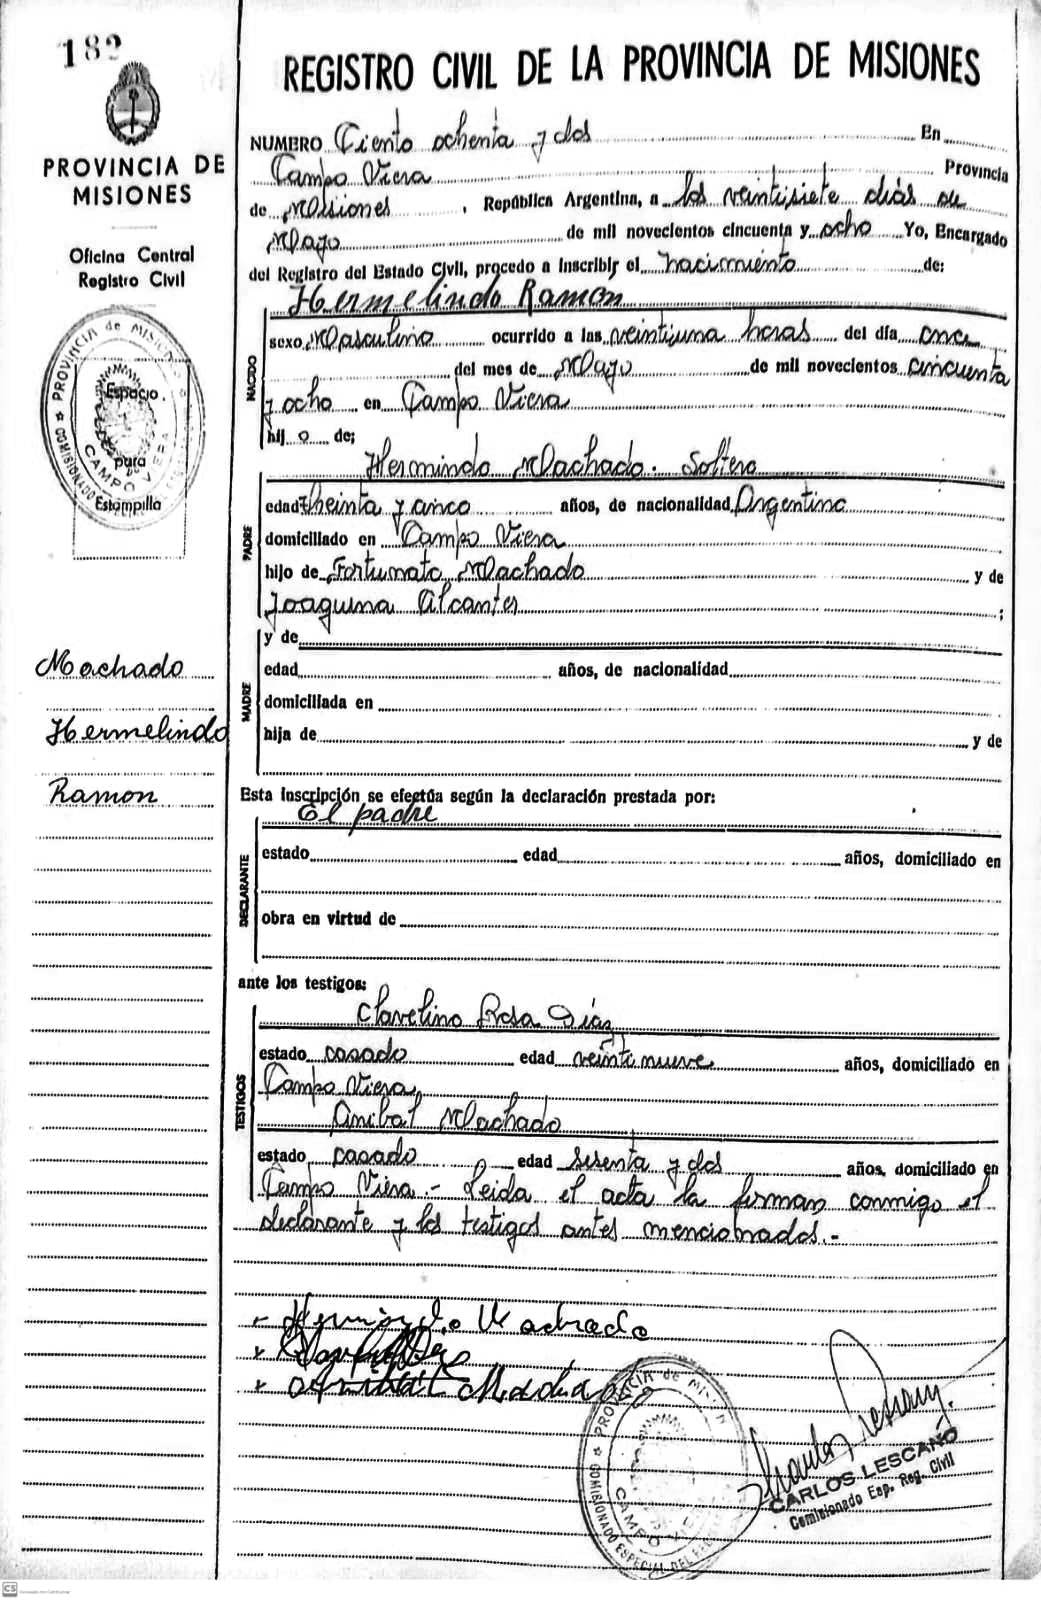 182
PROVINCIA DE
MISIONES
Oficina Central
Registro Civil
PROVINCIA de MISIONES
CAMPO VIERA
Espacio
para
Estampilla
Machado
Hermelindo
Ramon
REGISTRO CIVIL DE LA PROVINCIA DE MISIONES
NUMERO Ciento ochenta y dos En
Campo Viera Provincia
de Misiones, República Argentina, a los veintisiete días de
Mayo de mil novecientos cincuenta y ocho Yo, Encargado
del Registro del Estado Civil, procedo a inscribir el nacimiento de:
Hermelindo Ramon
NACIDO
sexo Masculino ocurrido a las veintiuna horas del día once
del mes de Mayo de mil novecientos cincuenta
y ocho en Campo Viera
hij o de;
Hermindo Machado. Soltero
PADRE
edad treinta y cinco años, de nacionalidad Argentino
domiciliado en Campo Viera
hijo de Fortunato Machado y de
Joaquina Alcantes ;
MADRE
y de
edad años, de nacionalidad
domiciliada en
hija de y de
Esta inscripción se efectúa según la declaración prestada por:
El padre
DECLARANTE
estado edad años, domiciliado en
obra en virtud de
ante los testigos:
Clavelino Rosa Díaz
TESTIGOS
estado casado edad veintinueve años, domiciliado en
Campo Viera
Anibal Machado
estado casado edad sesenta y dos años, domiciliado en
Campo Viera.- Leida el acta la firman conmigo el
declarante y los testigos antes mencionados.-
Machado
Anibal Machado
PROVINCIA de MISION
COMISIONADO ESPECIAL DEL
CAMPO VIERA
CARLOS LESCANO
Comisionado Esp. Reg. Civil
CS